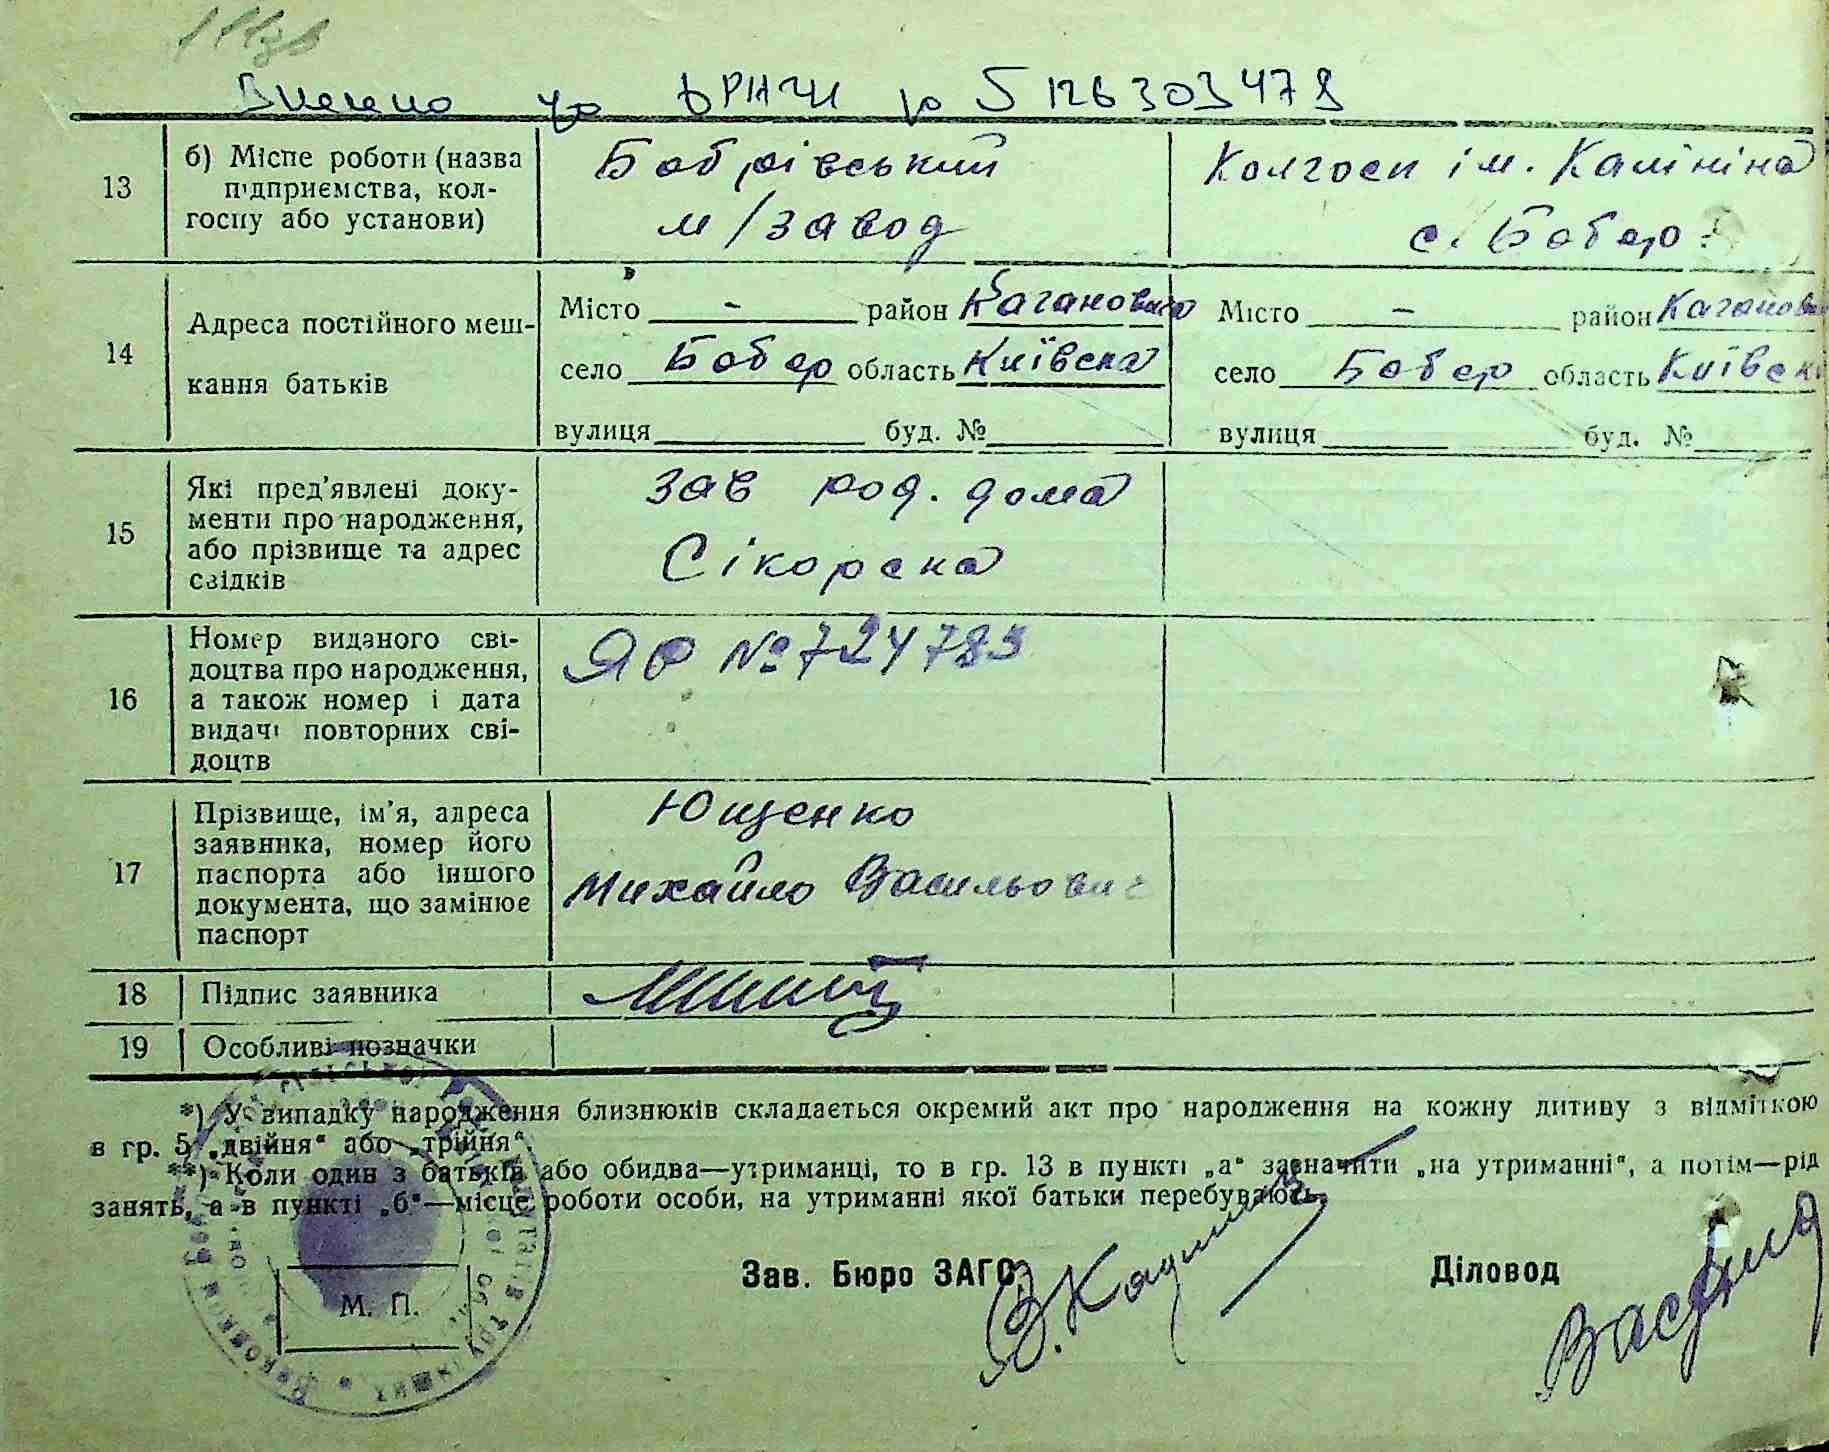 13 б) Місце роботи (назва підприємства, колгоспу або установи)
Бобрівський
м/завод
Колгосп ім. Калініна
с. Бобер
14 Адреса постійного мешкання батьків
Місто - район Каганович
село Бобер область Київська
вулиця буд. №
Місто - район Каганович
село Бобер область Київська
вулиця буд. №
15 Які пред'явлені документи про народження, або прізвище та адрес свідків
зав род. дома
Сікорська
16 Номер виданого свідоцтва про народження, а також номер і дата видачі повторних свідоцтв
ЯФ №724783
17 Прізвище, ім'я, адреса заявника, номер його паспорта або іншого документа, що замінює паспорт
Ющенко
Михайло Васильович
18 Підпис заявника
19 Особливі позначки
*) У випадку народження близнюків складається окремий акт про народження на кожну дитину з відміткою
в гр. 5 „двійня“ або „трійня“.
**) Коли один з батьків або обидва—утриманці, то в гр. 13 в пункті „а“ зазначити „на утриманні“, а потім—рід
занять, а в пункті „б“—місце роботи особи, на утриманні якої батьки перебувають.
Зав. Бюро ЗАГС
Діловод
М. П.